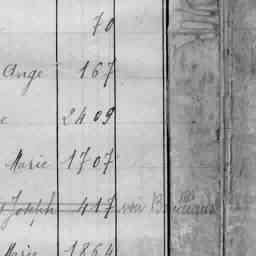 70
Ange 167
e 2409
Marie 1707
Joseph 417 voir
Marie 1864